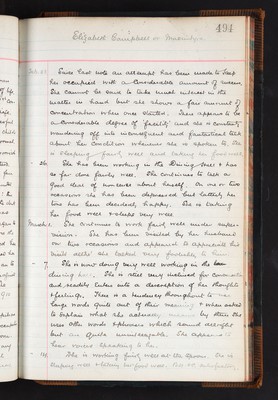 491
Elizabeth
Since last note an attempt has been made to keep
her occupied with a considerable amount of success.
She cannot be said to take much interest in the
matter in hand but she shows a fair amount of
concentration when once started. There appears to be
a considerable degree of "facility" and she is constantly
wandering off into inconsequent and fantastical talk
about her condition whenever she is spoken to. She
is sleeping fairly well and taking her food well
She has been working in the dining hall & has
so far done fairly well. She continues to talk a
good deal of nonsense about herself. On one or two
occasions she has been depressed but latterly has
been decidedly happy. She is taking
her food well & sleeps very well
March She continues to work fairly well under super-
vision. She has been visited by her husband
on two occasions and appeared to appreciate his
visits altho' she talked very foolishly to him
She is now doing very well working in the
She is still very inclined for conversation
and readily enters into a description of her thoughts
& feelings. There is a tendency throughout to use
large words quite out of their meaning & when asked
to explain what she actually means by them she
uses other words & phrases which sound alright
but are quite unintelligible. She appears
hear voices speaking to her.
She is working fairly well at the
sleeping well & taking her food well.